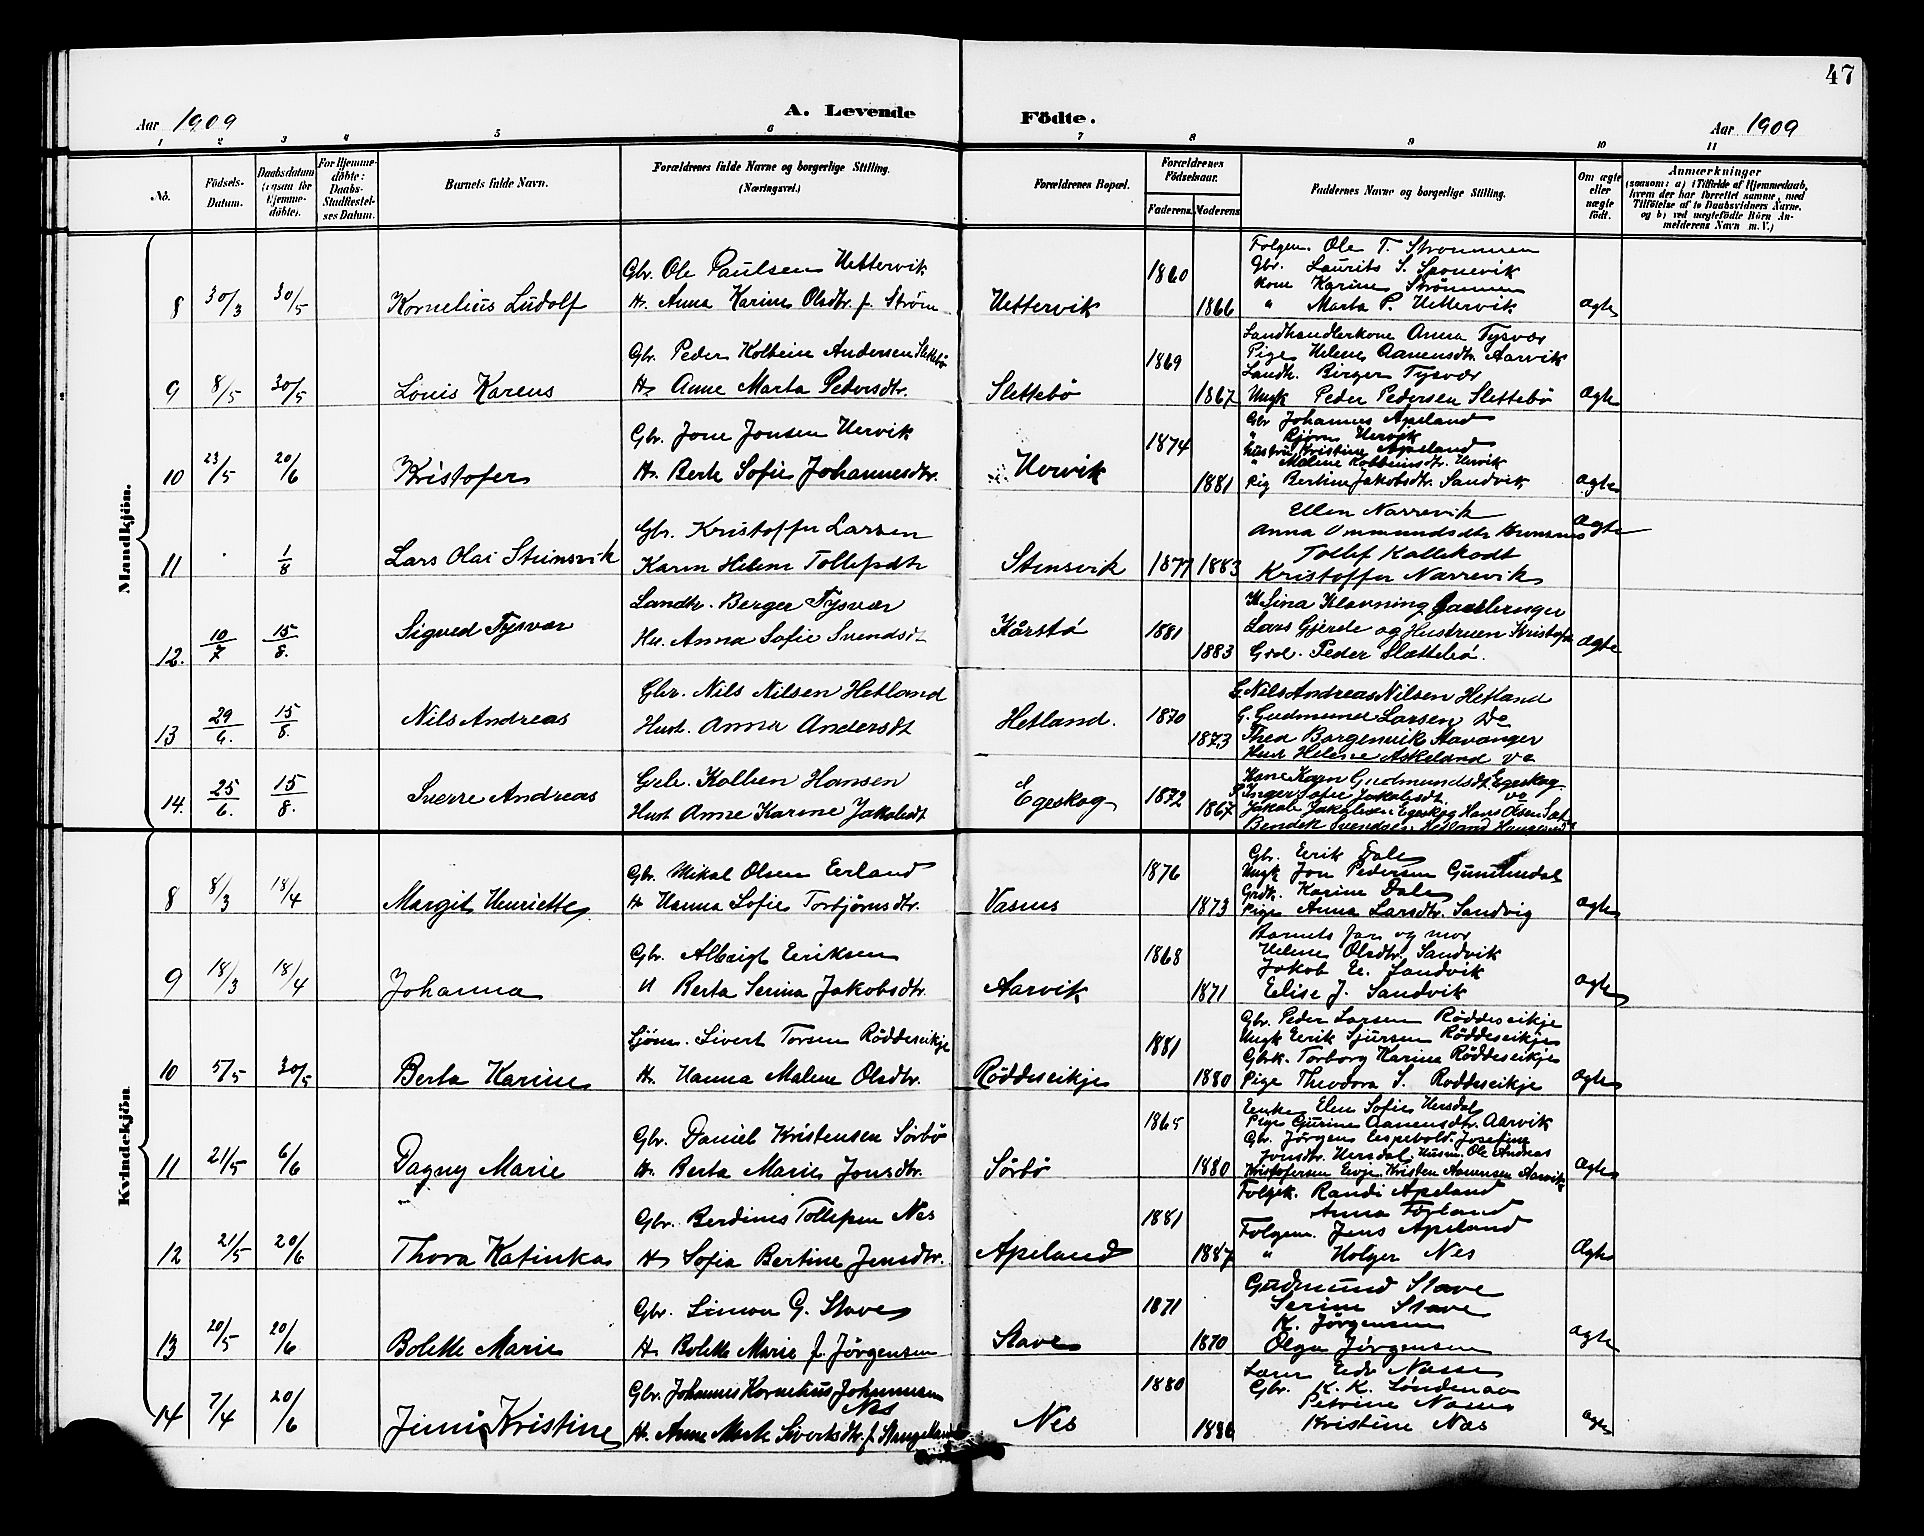 47
Aar 1909
A. Levende
Födte.
Aar 1909
1 2 3 4 5 6 7 8 9 10 11
No.
Födsels-Datum.
Daabsdatum (ogsaa for Hjemme-döbte).
For Hjemme-döbte: Daabs-Stadfæstel-ses Datum.
Barnets fulde Navn.
Forældrenes fulde Navne og borgerlige Stilling. (Næringsvei.)
Forældrenes Bopæl.
Forældrenes Födselsaar.
Faderens. Moderens.
Faddernes Navne og borgerlige Stilling.
Om ægte eller uægte födt.
Anmærkninger (saasom: a) i Tilfælde af Hjemmedaab, hvem der har forrettet samme, med Tilföielse af to Daabsvidners Navne, og b) ved uægtefödte Börn An-melderens Navn m. V.)
Mandkjön.
8 30/3 30/5 Kornelius Ludolf
Gbr. Ole Paulsen Hettervik
H. Anna Karine Olsdtr. f. Ström
Hettervik 1860 1866
Folgem. Ole T. Strommen
Gbr. Laurits S. Sponevik
Kone Karine Strömmen
" Marta P. Hettervik
Ægte
9 8/5 30/5 Louis Karens
Gbr. Peder Kolbein Andersen Slettebø
H. Anne Marta Pedersdtr.
Slettebö 1869 1867
Landhandlerkone Anna Tysvær
Pige Helene Aanensdtr. Aarvik
Landh. Birger Tysvær
Ungk Peder Pedersen Slettebö
Ægte
10 23/5 20/6 Kristofer
Gbr. Jone Jonsen Hervik
H. Berte Sofie Johannesdtr.
Hervik 1874 1881
Gbr Johannes Apeland
" Bjørn Hervik
Hustru Kristine Apeland
" Maline Kolbeinsdtr. Hervik
Pig Bertine Jakobsdtr. Sandvik
Ægte
11 1/8 Lars Olai Steinsvik
Gbr. Kristoffer Larsen
Karen Helene Tollefsdtr
Stensvik 1877 1883
Ellen Narrevik
Anna Ommundsdtr
Tollef Kallekodt
Kristoffer Narrevik
Ægte
12. 10/7 15/8. Sigved Tysvær
Landh. Berger Tysvær
Hu. Anna Sofie Svendsdt
Kårstö 1881 1883
K. Sina Klavning
Lars Gjerde og Hustruen
Grd. Peder Slættebö.
Ægte
13 29/6. 15/8. Nils Andreas
Gbr. Nils Nilsen Hetland
Hust. Anna Andersdt
Hetland. 1870 1873
G. Nils Andreas Nilsen Hetland
G. Gudmund Larsen
Thea Stavanger
Hust Helene Askeland
14. 25/6. 15/8. Sverre Andreas
Gbr. Kolben Hansen
Hust Anne Karine Jakobsdt
Egeskog 1872 1867
Kone Karen Gudmundsdt Egeskog
P. Inger Sofie Jakobsdt.
Jakob Jakobsen Egeskog Hans Olsen
Bendik Svendsen Hetland
Kvindekjön
8 8/3 18/4 Margit Henriette
Gbr. Mikal Olsen Eerland
H. Hanna Sofie Torbjørnsdtr.
Vasnes 1876 1873
Gbr. Eerik Dale
Ungk Jon Pedersen
Grdk. Karine Dale
Pige Anna Larsdtr. Sandvig
Ægte
9 18/3 18/4 Johanna
Gbr. Albrigt Eeriksen
H Berta Serina Jakobsdtr.
Aarvik 1868 1871
Barnets far og mor
Helene Olsdtr. Sandvik
Jakob Ee. Sandvik
Eelise J. Sandvik
Ægte
10 5/5 30/5 Berta Karine
Sjöm. Sivert Torsen Röddesvikje
H. Hanna Malene Olsdtr.
Röddesvikje 1881 1880
Gbr. Peder Larsen Röddesvikje
Ungk Eerik Sjursen Röddesvikje
Gbrk. Torborg Karina Röddesvikje
Pige Theodora S. Röddesvikje
Ægte
11 21/5 6/6 Dagny Marie
Gbr. Daniel Kristensen Sörbö
H. Berta Marie Jonsdtr.
Sörbö 1865 1880
Eenke Elen Sofie Hersdal
Pige Gurine Aanensdtr. Aarvik
Gbr. Jörgen Josefine
Jonsdtr. Hersdal, Husm. Ole Andreas
Kristofersen Kristen Aanensen Aarvik
Ægte
12 21/5 20/6 Thora Katinka
Gbr. Berdines Tollefsen Nes
H. Sofia Bertine Jensdtr.
Apeland 1881 1887
Folgek. Randi Apeland
Anna Førland
Folgem. Jens Apeland
" Holger Nes
Ægte
13 20/5 20/6 Bolette Marie
Gbr. Simon G. Stave
H. Bolette Marie f. Jörgensen
Stave 1871 1870
Gudmund Stave
Serine Stave
K. Jörgensen
Olga Jörgensen
Ægte
14 7/4 20/6 Jinni Kristine
Gbr. Johannes Kornelius Johannesen Nes
H. Anne Marte Sivertsdtr. f. Stangeland
Nes 1880 1886
Gbr. K. K.
Petrine
Kristine Næs
Ægte